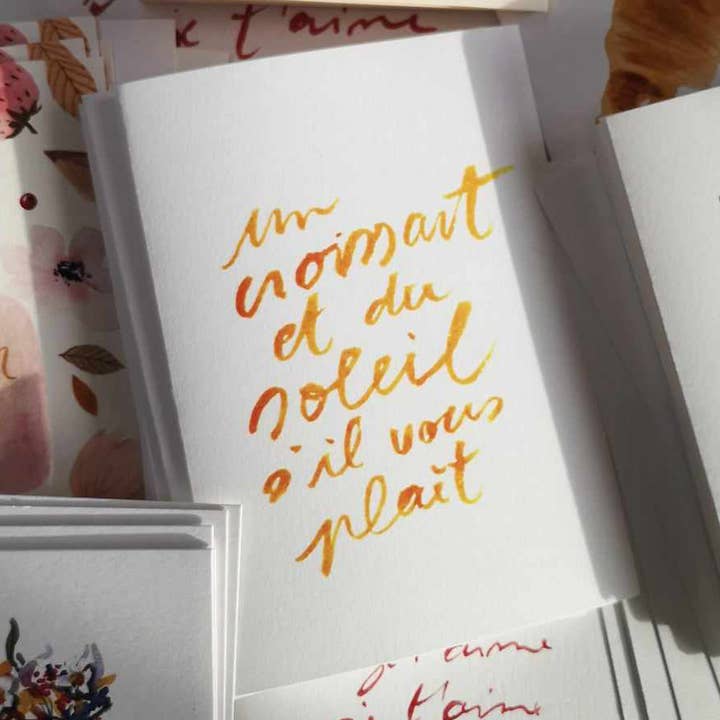 t'aime
un
croissant
et du
soleil
s'il vous
plaît
t'aime